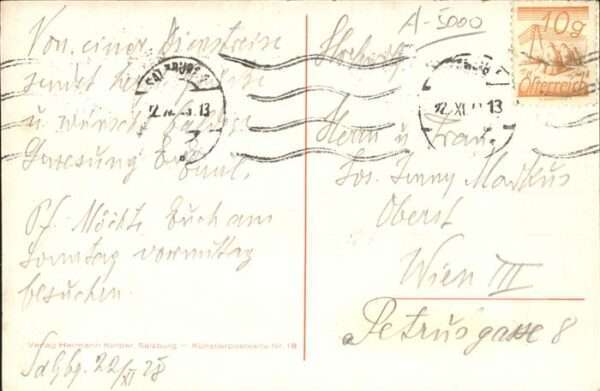 Von einer Dienstreise
sendet herzl. Grüße
u. wünscht baldige
Genesung Euer
Emil.
Pf. Möchte Euch am
Sonntag vormittag
besuchen.
Verlag Hermann Kerber, Salzburg — Künstlerpostkarte Nr. 18
Salzbg. 22/XI 28
A-5000
10g
Österreich
SALZBURG 2
22. XI. 13
Herrn u. Frau
Jos. Jenny Markus
Oberst
Wien III
Petrusgasse 8